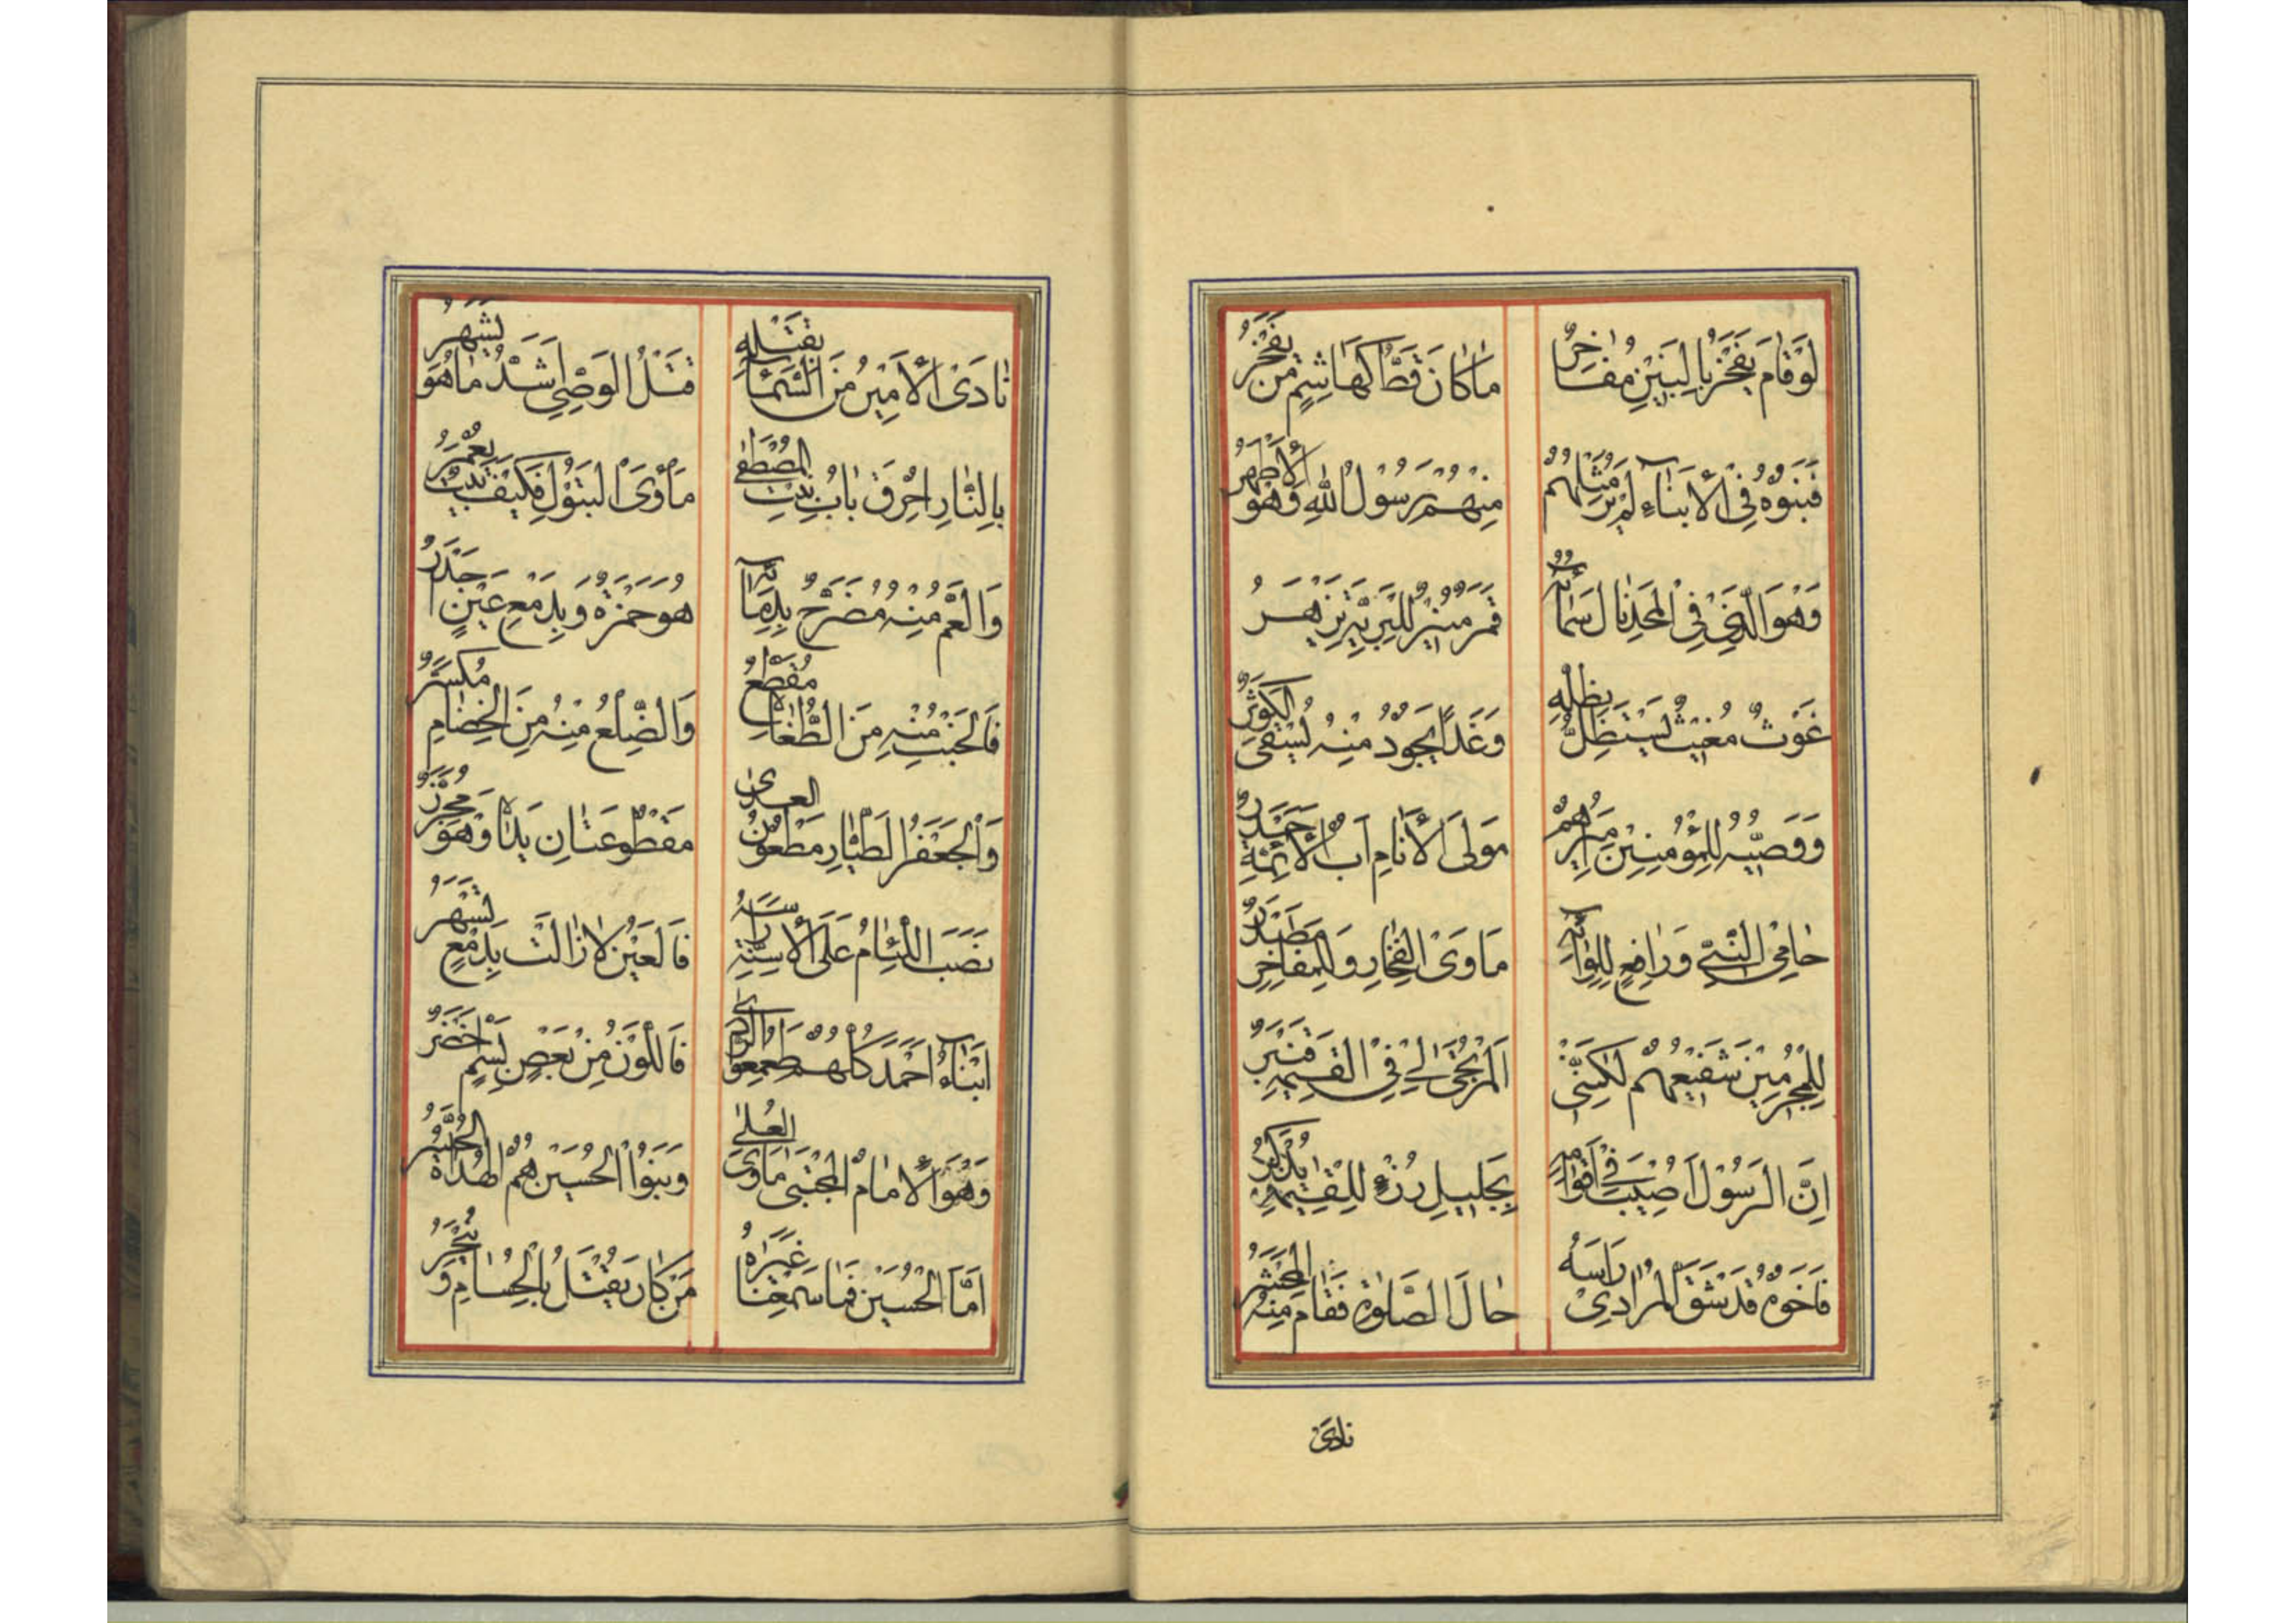 لَوْ قَامَ يَفْخَرُ بِالْبَنِيْنِ مُفَاخِرٌ مَا كَانَ قَطُّ كَهَاشِمٍ مَنْ يَفْخَرُ
فَبَنُوْهُ فِي الْأَبْنَاءِ لَمْ يُرَ مِثْلُهُمْ مِنْهُمْ رَسُوْلُ اللهِ وَهُوَ الْأَطْهَرُ
وَهُوَ الَّذِيْ فِي الْمَجْدِ نَالَ سَمَائَهُ قَمَرٌ مُنِيْرٌ لِلْبَرِيَّةِ يَزْهَرُ
غَوْثٌ مُغِيْثٌ يُسْتَظَلُّ بِظِلِّهِ وَغَدًا يَجُوْدُ مِنْهُ يُسْقَى الْكَوْثَرُ
وَوَصِيُّهُ لِلْمُؤْمِنِيْنَ أَمِيْرُهُمْ مَوْلَى الْأَنَامِ أَبُ الْأَئِمَّةِ حَيْدَرُ
حَامِي النَّبِيِّ وَرَافِعٌ لِلِوَائِهِ مَاوَى الْفَخَارِ وَلِلْمَفَاخِرِ مَصْدَرُ
لِلْمُجْرِمِيْنَ شَفِيْعُهُمْ لَكِنَّنِيْ الْمُرْتَجَى لِيْ فِي الْقِيٰمَةِ قَنْبَرُ
إِنَّ الرَّسُوْلَ أُصِيْبَ فِيْ أَقْوَامِهِ بِجَلِيْلِ رُزْءٍ لِلْقِيٰمَةِ يُذْكَرُ
فَاخُوْهُ قَدْ شَقَّ الْمُرَادِيْ رَاسَهُ حَالَ الصَّلٰوةِ فَقَامَ مِنْهُ الْمَحْشَرُ
نادى
نَادَى الْأَمِيْنُ مِنَ السَّمَاءِ بِقَتْلِهِ قَتْلُ الْوَصِيِ أَشَدُّ مَا هُوَ يُشْهَرُ
بِالنَّارِ احْرِقَ بَابُ بَيْتِ الْمُصْطَفَى مَأْوَى الْبَتُوْلِ فَكَيْفَ بَيْتٌ يُعْمَرُ
وَالْعَمُّ مِنْهُ مُضَرَّجٌ بِدِمَائِهِ هُوَ حَمْزَةٌ وَبِدَمْعِ عَيْنٍ أَجْدَرُ
فَالْجَنْبُ مِنْهُ مِنَ الطُّغَاةِ مُقَطَّعٌ وَالضِّلْعُ مِنْهُ مِنَ الْخِصَامِ مُكَسَّرُ
وَالْجَعْفَرُ الطَّيَّارِ مَطْعُوْنُ الْعِدَى مَقْطُوْعَتَانِ يَدَاهُ وَهُوَ مُجَزَّرُ
نَصَبَ اللِّئَامُ عَلَى الْأَسِنَّةِ رَاسَهُ فَالْعَيْنُ لَا زَالَتْ بِدَمْعٍ تَسْهَرُ
أَبْنَاءُ أَحْمَدَ كُلُّهُمْ طُعِمُوا الرَّدَى فَاللَّوْنُ مِنْ بَعْضٍ بِسَمٍّ أَخْضَرُ
وَهُوَ الْإِمَامُ الْمُجْتَبَى مَاوَى الْعُلَى وَبَنُوا الْحُسَيْنِ هُمُ الْهُدَاةُ الْخُسَّرُ
أَمَّا الْحُسَيْنُ فَمَا سَمِعْنَا غَيْرَهُ مَنْ كَانَ يُقْتَلُ بِالْحُسَامِ وَيُنْحَرُ